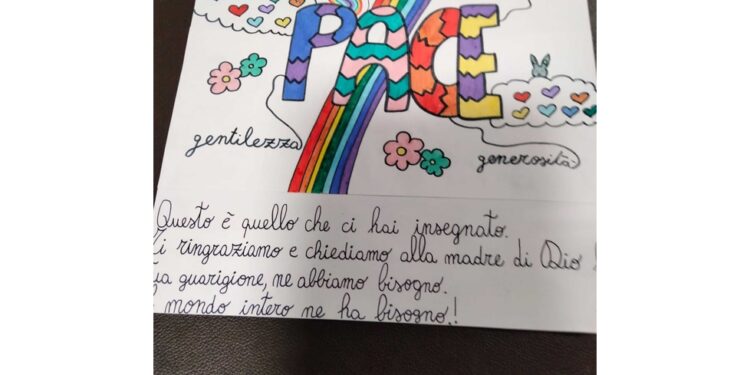 PACE
gentilezza
generosità
Questo è quello che ci hai insegnato.
Ti ringraziamo e chiediamo alla madre di Dio
tua guarigione, ne abbiamo bisogno.
mondo intero ne ha bisogno!